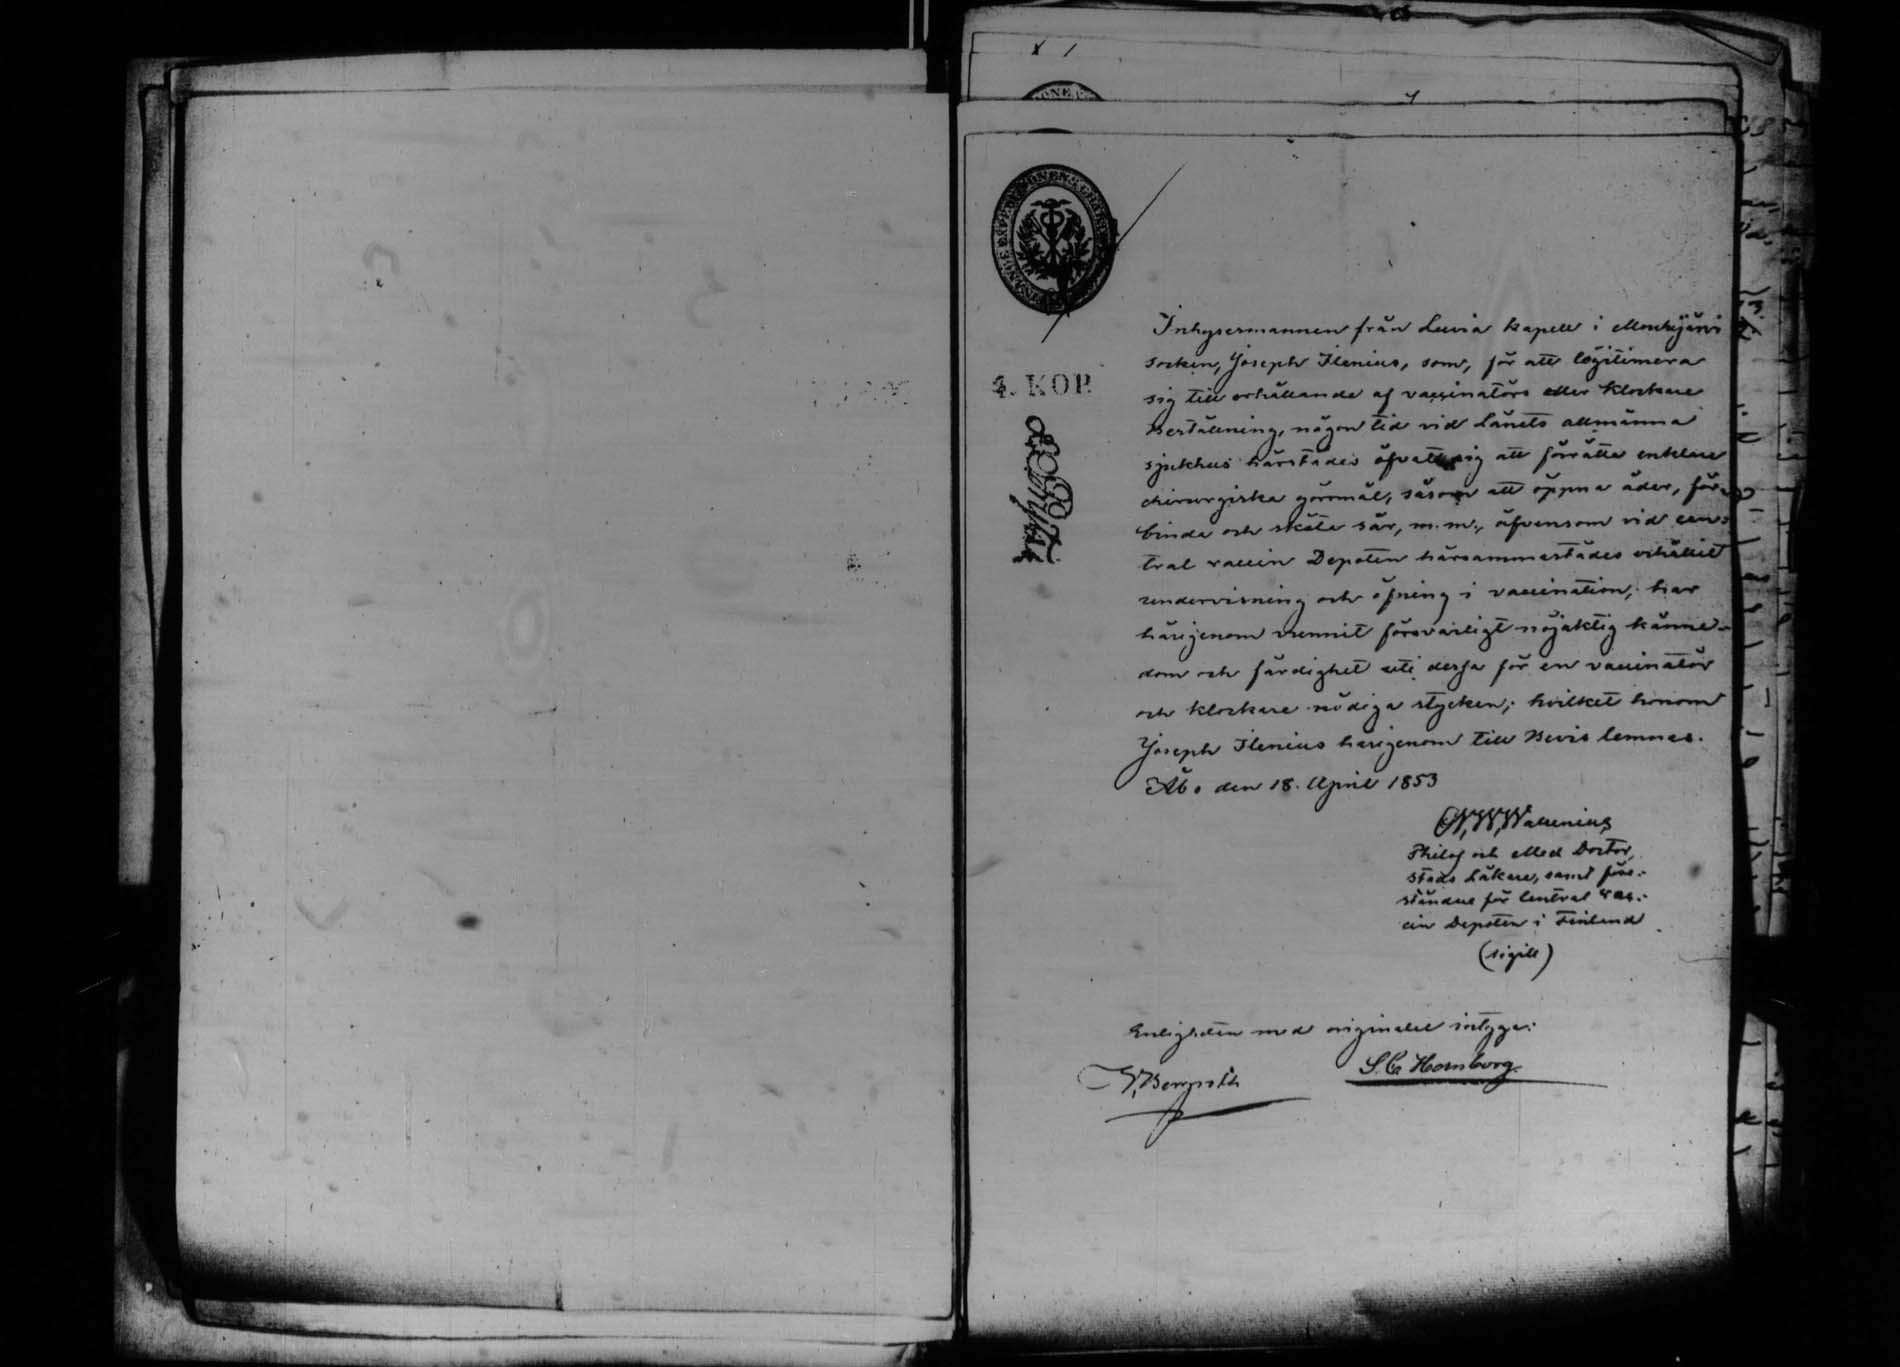 4. KOP.
Inhysesmannen från Luvia kapell i Mouhijärvi
socken, Joseph Ilenius, som, för att legitimera
sig till erhållande af vaccinatörs eller klockare
Beställning, någon tid vid Länets allmänna
sjukhus härstädes öfvat sig att förrätta enklare
chirurgiska göromål, såsom att öppna åder, för-
binda och sköta sår, m. m., äfvensom vid cen-
tral vaccin Depoten härsammastädes erhållit
undervisning och öfning i vaccination; har
härigenom vunnit försvarligt nöjaktig känne-
dom och färdighet uti dessa för en vaccinatör
och klockare nödiga stycken; hvilket honom
Joseph Ilenius härigenom till Bevis lemnas.
Åbo den 18. April 1853
Philos och Med Doctor,
stads Läkare, samt före-
ståndare för Central vac-
cin Depoten i Finland
(sigill)
Enligheten med originalet intyga:
S. C. Hornborg.